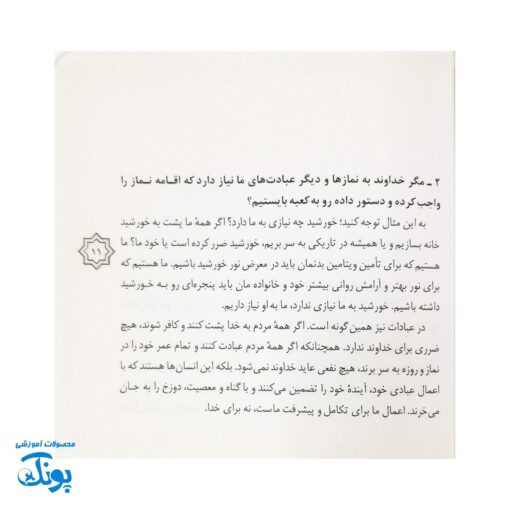 ۲ ـ مگر خداوند به نمازها و دیگر عبادت‌های ما نیاز دارد که اقامه نماز را
واجب کرده و دستور داده رو به کعبه بایستیم؟
به این مثال توجه کنید؛ خورشید چه نیازی به ما دارد؟ اگر همهٔ ما پشت به خورشید
خانه بسازیم و یا همیشه در تاریکی به سر بریم، خورشید ضرر کرده است یا خود ما؟ ما
هستیم که برای تأمین ویتامین بدنمان باید در معرض نور خورشید باشیم. ما هستیم که
برای نور بهتر و آرامش روانی بیشتر خود و خانواده مان باید پنجره‌ای رو به خورشید
داشته باشیم. خورشید به ما نیازی ندارد، ما به او نیاز داریم.
در عبادات نیز همین گونه است. اگر همه مردم به خدا پشت کنند و کافر شوند، هیچ
ضرری برای خداوند ندارد. همچنانکه اگر همهٔ مردم عبادت کنند و تمام عمر خود را در
نماز و روزه به سر برند، هیچ نفعی عاید خداوند نمی‌شود. بلکه این انسان‌ها هستند که با
اعمال عبادی خود، آیندهٔ خود را تضمین می‌کنند و با گناه و معصیت، دوزخ را به جان
می‌خرند. اعمال ما برای تکامل و پیشرفت ماست، نه برای خدا.
۱۱
محصولات آموزشی
پونک